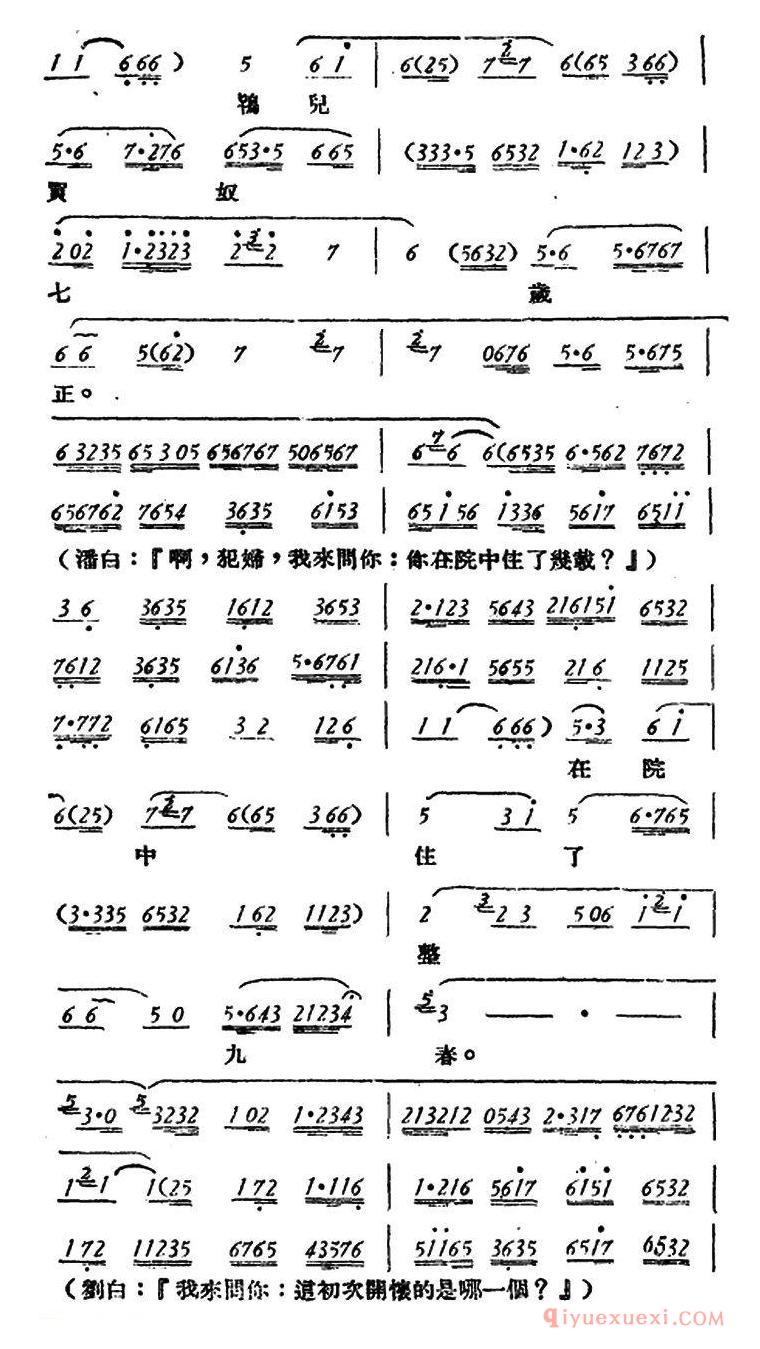 1 1 6 6 6 ) 5 6 1 | 6 (2 5) 7 2 7 6 (6 5 3 6 6) |
鴇 兒
5·6 7·2 7 6 6 5 3·5 6 6 5 | (3 3 3·5 6 5 3 2 1·6 2 1 2 3) |
買 奴
2 0 2 1·2 3 2 3 2 3 2 7 | 6 (5 6 3 2) 5·6 5·6 7 6 7 |
七 歲
6 6 5 (6 2) 7 2 7 | 2 7 0 6 7 6 5·6 5·6 7 5
正。
6 3 2 3 5 6 5 3 0 5 6 5 6 7 6 7 5 0 6 5 6 7 | 6 7 6 6 (6 5 3 5 6·5 6 2 7 6 7 2 |
6 5 6 7 6 2 7 6 5 4 3 6 3 5 6 1 5 3 | 6 5 1 5 6 1 3 3 6 5 6 1 7 6 5 1 1 |
(潘白：『啊，犯婦，我來問你：你在院中住了幾載？』)
3 6 3 6 3 5 1 6 1 2 3 6 5 3 | 2·1 2 3 5 6 4 3 2 1 6 1 5 1 6 5 3 2 |
7 6 1 2 3 6 3 5 6 1 3 6 5·6 7 6 1 | 2 1 6·1 5 6 5 5 2 1 6 1 1 2 5 |
7·7 7 2 6 1 6 5 3 2 1 2 6 | 1 1 6 6 6 ) 5·3 6 1 |
在 院
6 (2 5) 7 2 7 6 (6 5 3 6 6) | 5 3 1 5 6·7 6 5 |
中 住 了
(3·3 3 5 6 5 3 2 1 6 2 1 1 2 3) | 2 3 2 3 5 0 6 1 2 1 |
整
6 6 5 0 5·6 4 3 2 1 2 3 4 | 5 3 — · — |
九 春。
5 3·0 5 3 2 3 2 1 0 2 1·2 3 4 3 | 2 1 3 2 1 2 0 5 4 3 2·3 1 7 6 7 6 1 2 3 2 |
1 2 1 1 (2 5 1 7 2 1·1 1 6 | 1·2 1 6 5 6 1 7 6 1 5 1 6 5 3 2 |
1 7 2 1 1 2 3 5 6 7 6 5 4 3 5 7 6 | 5 1 1 6 5 3 6 3 5 6 5 1 7 6 5 3 2 |
(劉白：『我來問你：這初次開懷的是哪一個？』)
qiyuexuexi.COM